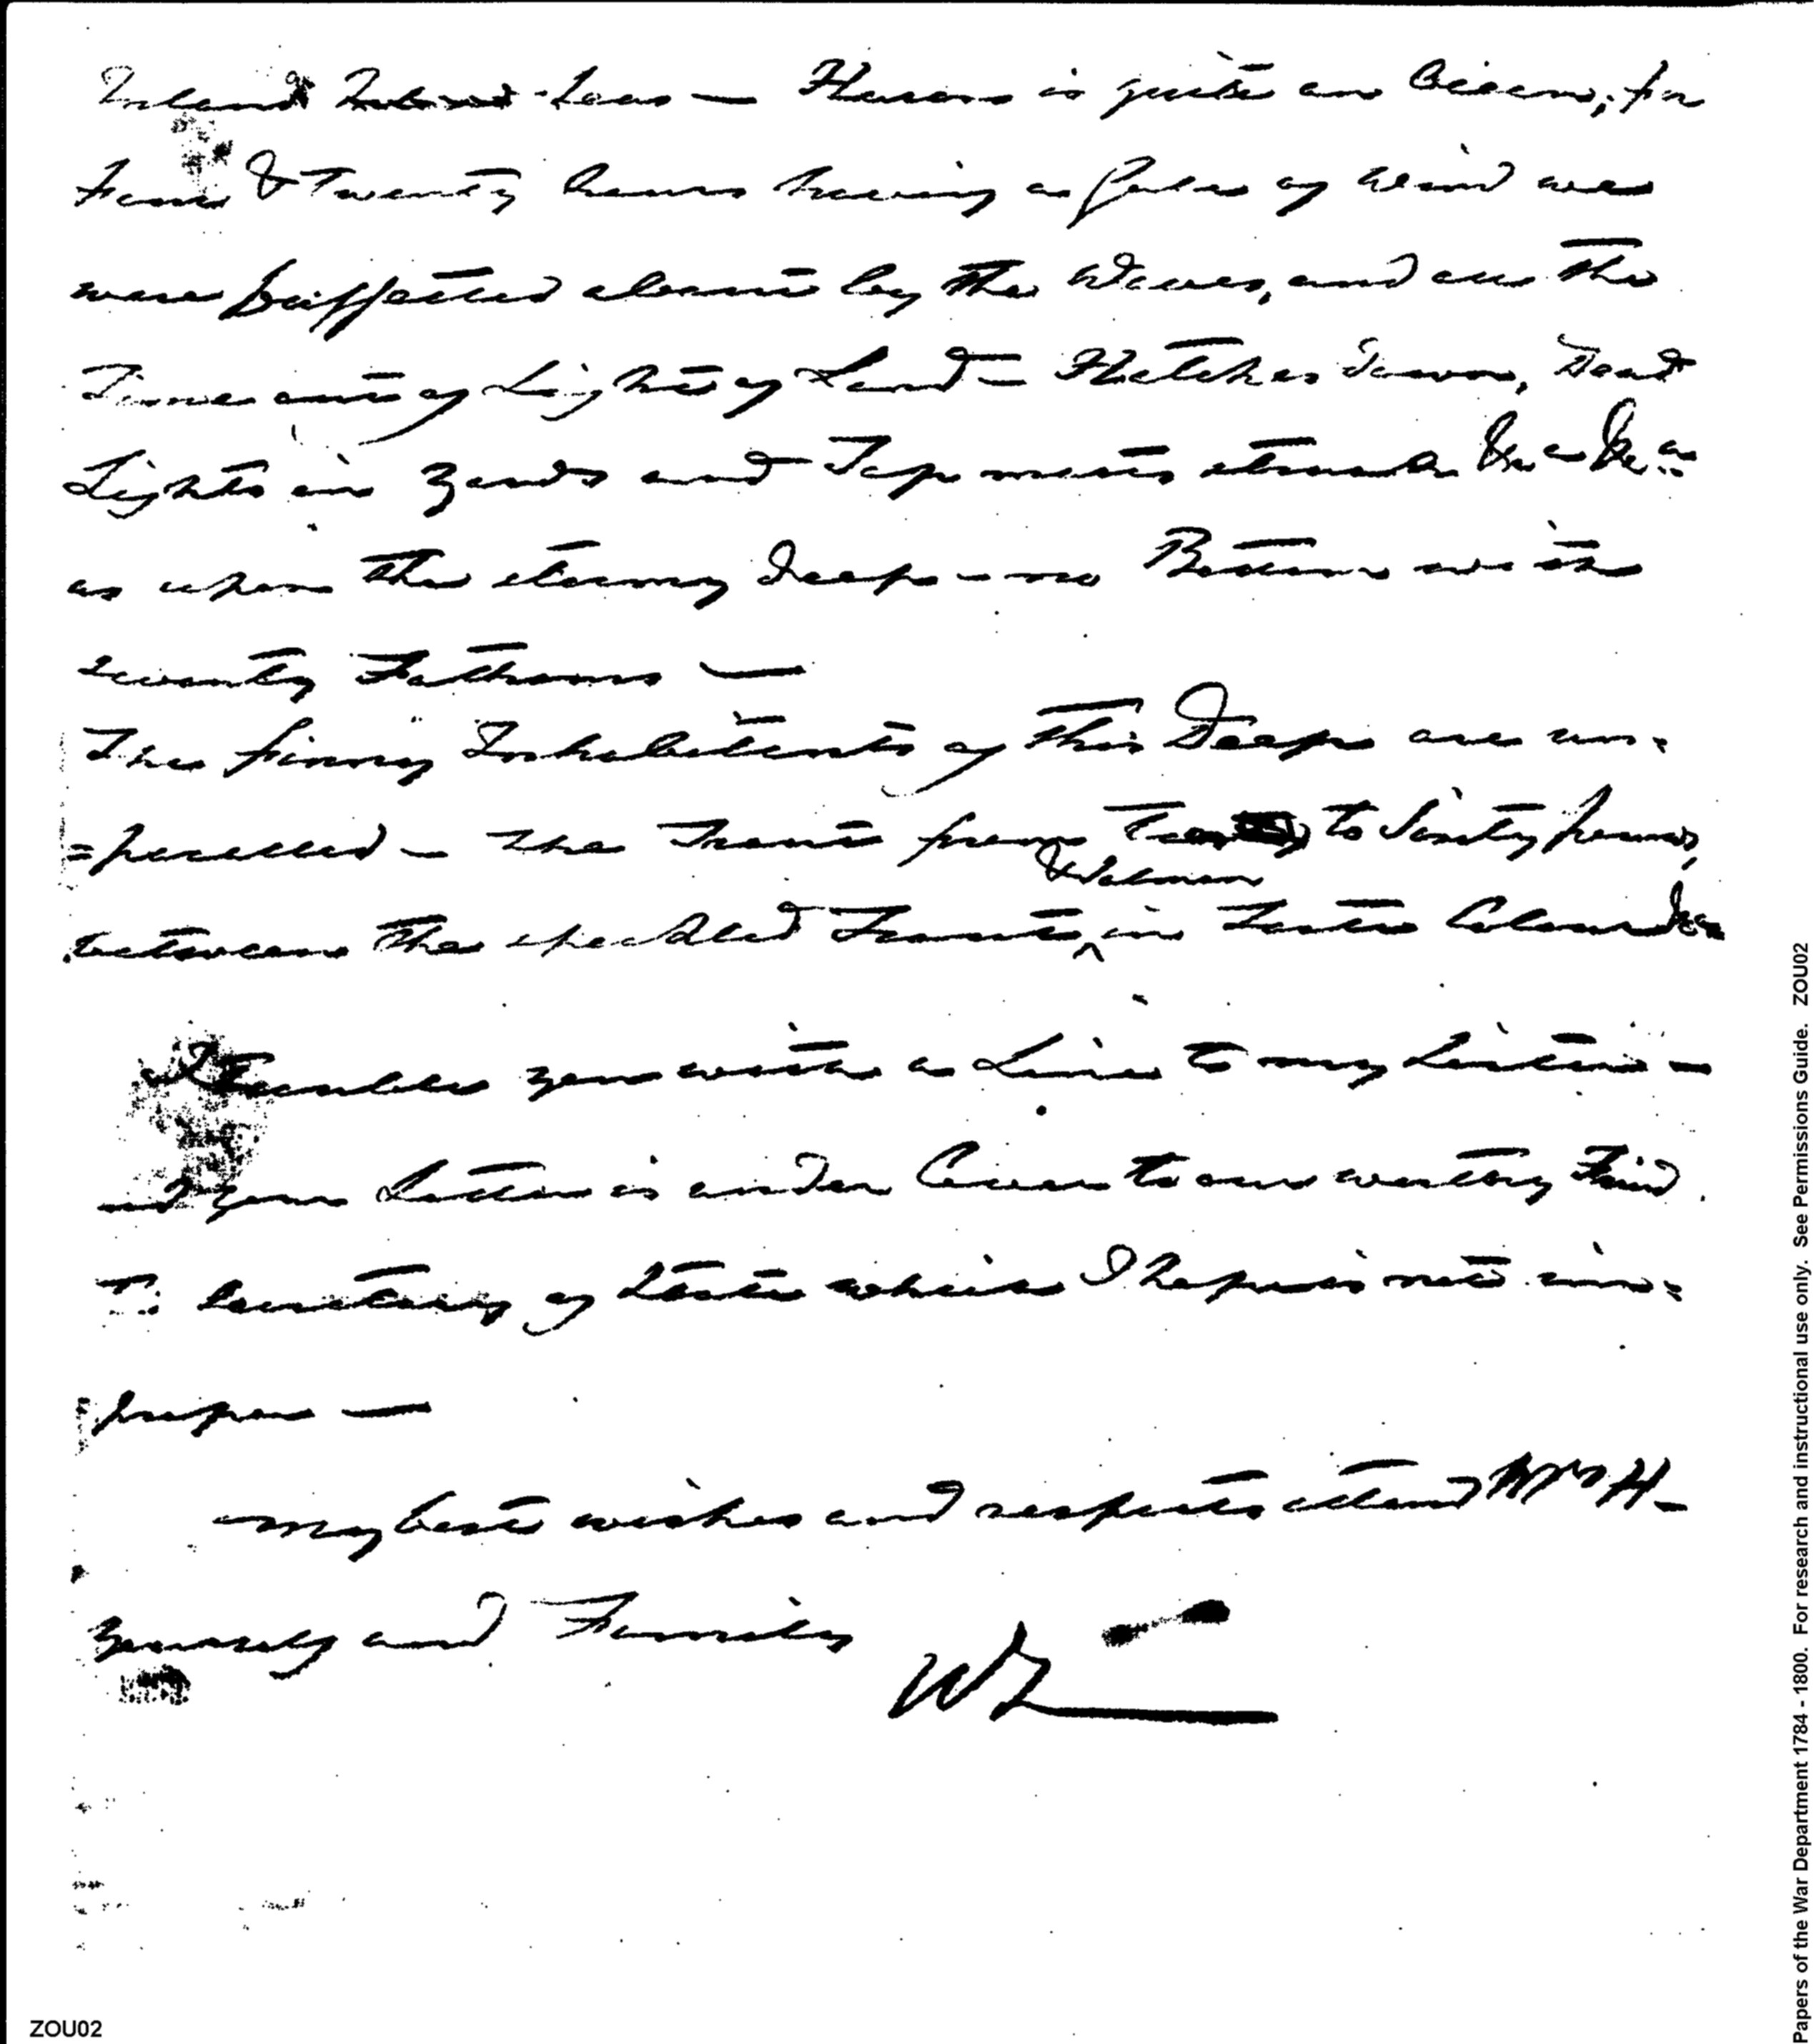 Inland Seas — Huron is quite an Ocean, for
Four & Twenty hours having a Gale of Wind we
were buffetted about by the Waves, and all the
Time out of Sight of Land — Hatches Down, Dead
Lights in Yards and Top masts struck &c a &c a
as upon the stormy Deep — no Bottom with
seventy Fathoms —
The finny Inhabitants of this Deep are un=
=paralelled — The Trout from to Sixty pounds,
& Salmon
between the speckled Trout ^ in Taste Colour &c a
I Trouble you with a Line to my Sister —
and your Letter is under Cover to our worthy Frind
The Secretary of State which I hope is not im=
proper —
my best wishes and respects attend Mrs H—
yourself and Family
W
ZOU02
Papers of the War Department 1784 - 1800. For research and instructional use only. See Permissions Guide. ZOU02